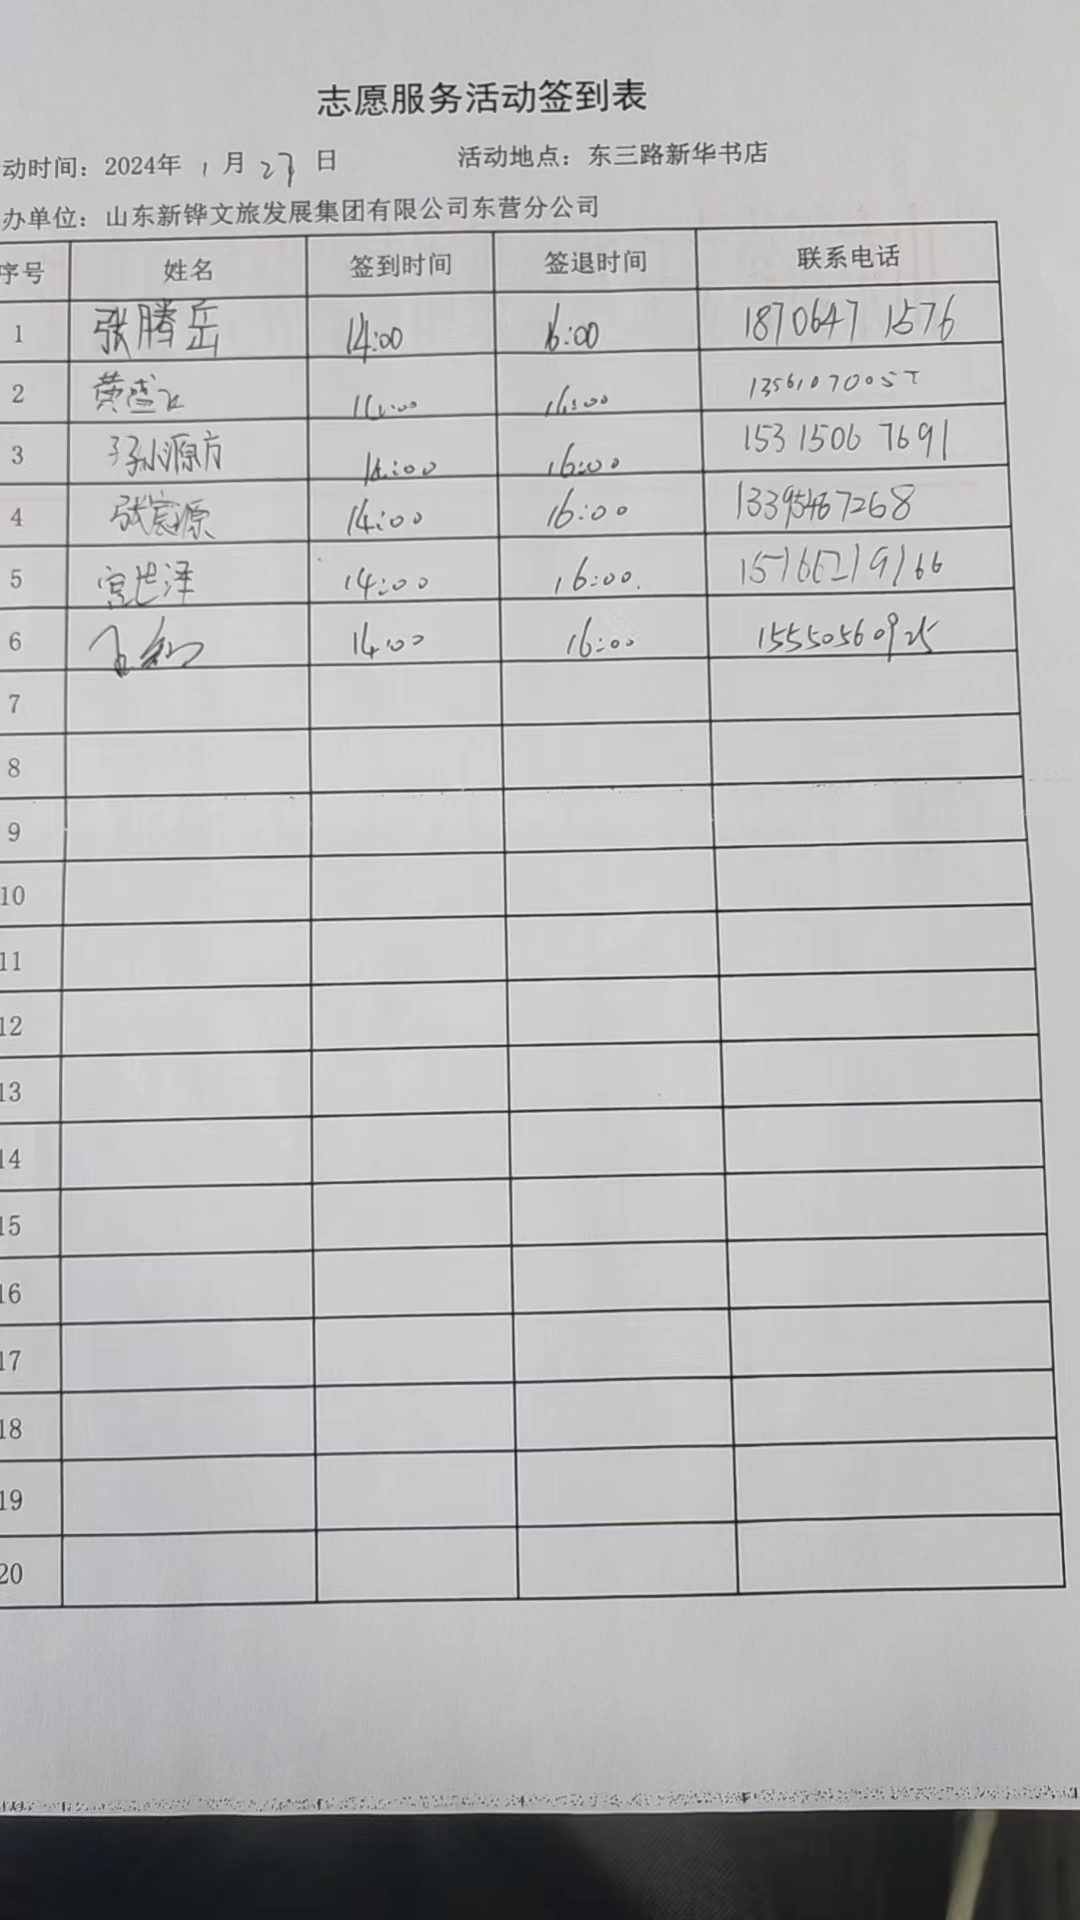 志愿服务活动签到表
动时间：2024年 1 月 27 日 活动地点：东三路新华书店
办单位：山东新铧文旅发展集团有限公司东营分公司
序号 姓名 签到时间 签退时间 联系电话
1 张腾岳 14:00 16:00 18706471576
2 14:00 16:00
3 孙源方 14:00 16:00 15315067691
4 张宸源 14:00 16:00 13395467268
5 宫世泽 14:00 16:00
6 14:00 16:00 15550560925
7
8
9
10
11
12
13
14
15
16
17
18
19
20